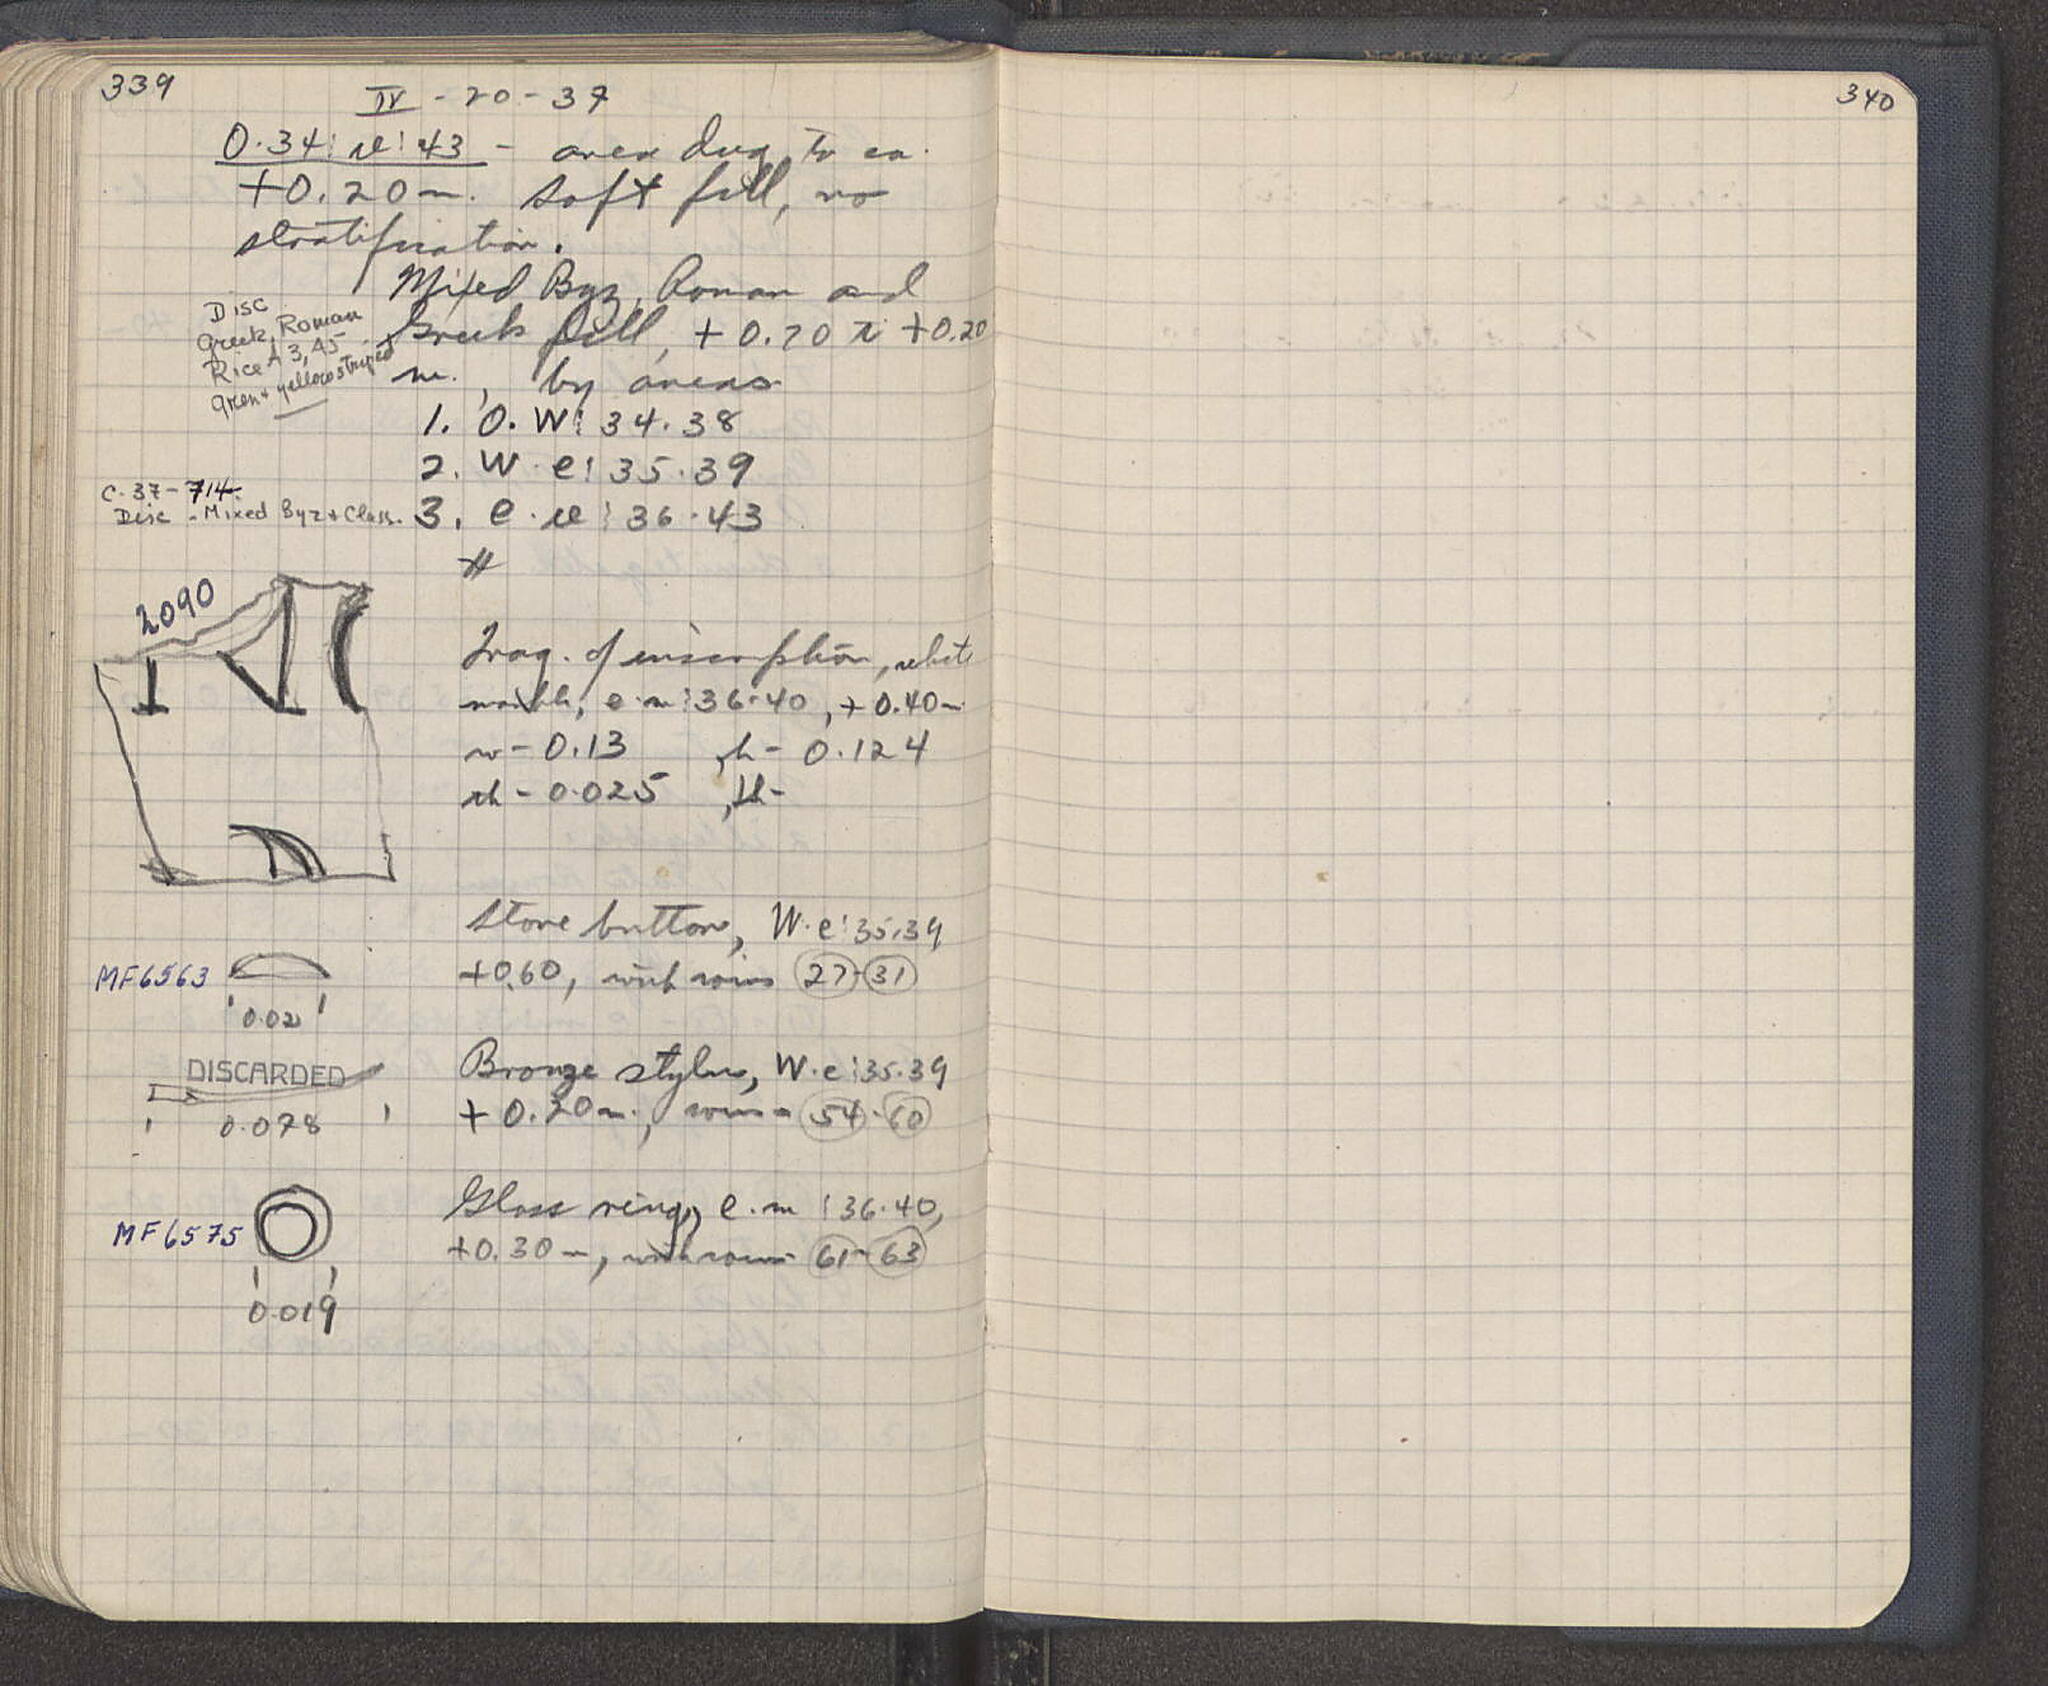 339
IV - 20 - 37
O.34: :43 - area dug to ca.
+0.20m. Soft fill, no
stratification.
Mixed Byz, Roman and
Greek fill, + 0.70 to +0.20
m., by areas
Disc
Greek, Roman
Rice A 3, 45
Green + yellow striped
1. O. W: 34.38
2. W. e: 35.39
C. 37-714
Disc - Mixed Byz + Class.
3. e. : 36.43
#
2090
Frag. of inscription, white
marble, e. m: 36.40, + 0.40m
w - 0.13 , h - 0.124
th - 0.025 , lh -
Stone button, W.e: 35.39
+0.60, with coins 27-31
MF6563
0.02
DISCARDED
0.078
Bronze stylus, W.e: 35.39
+ 0.20m., coins - 54-60
Glass ring, e.m: 36.40,
+0.30m, with coins 61-63
MF6575
0.019
340